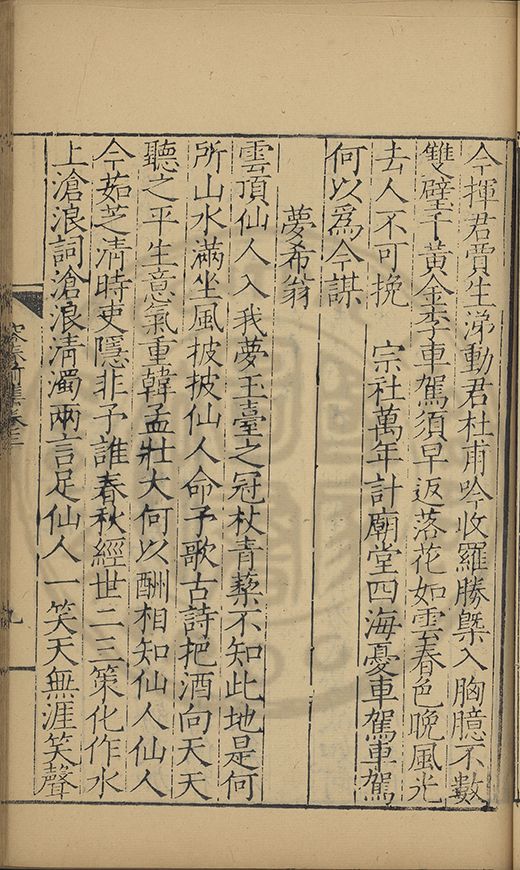 今揮君賈生涕動君杜甫吟收羅勝槩入胸臆不數
雙璧千黃金李車駕須早返落花如雲春色晚風光
去人不可挽　宗社萬年計廟堂四海憂車駕車駕
何以爲今謀
夢希翁
雲頂仙人入我夢玉臺之冠杖青藜不知此地是何
所山水滿坐風披披仙人命予歌古詩把酒向天天
聽之平生意氣重韓孟壯大何以酬相知仙人仙人
今茹芝清時吏隱非予誰春秋經世二三策化作水
上滄浪詞滄浪清濁兩言足仙人一笑天無涯笑聲
九